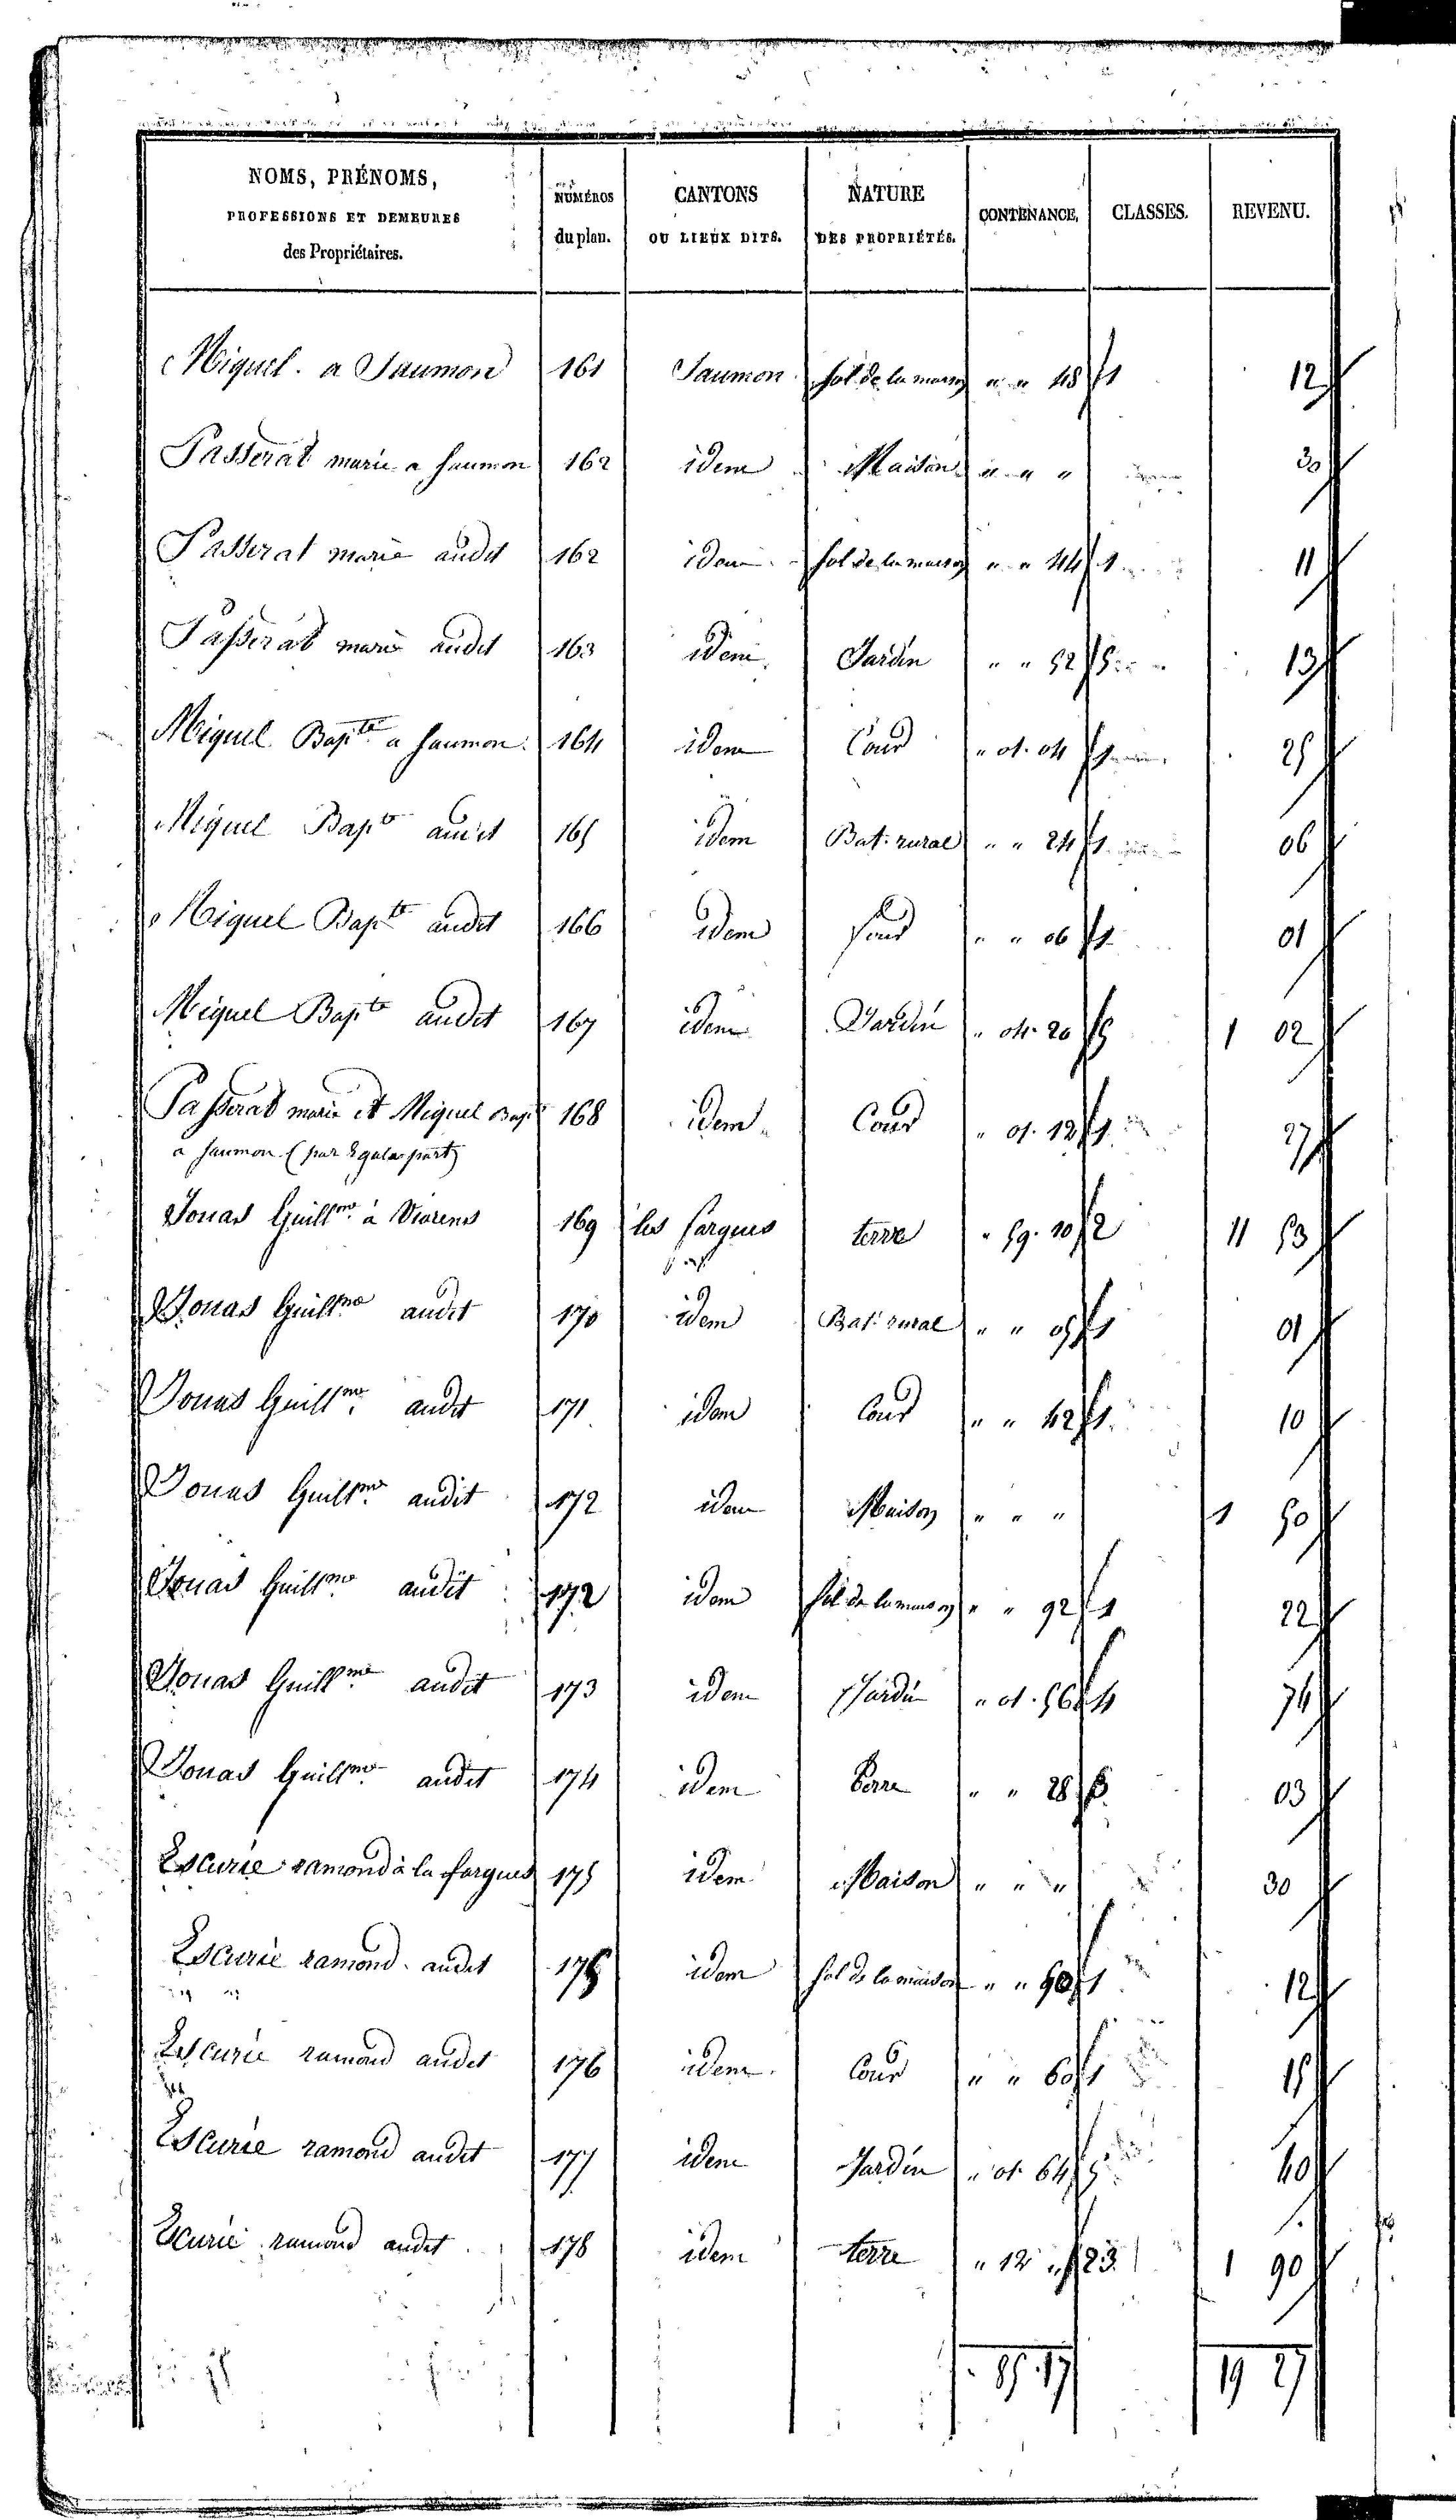 NOMS, PRÉNOMS, PROFESSIONS ET DEMEURES des Propriétaires. NUMÉROS du plan. CANTONS OU LIEUX DITS. NATURE DES PROPRIÉTÉS. CONTENANCE. CLASSES. REVENU.
Miquel. a Saumon 161 Saumon sol de la maison " " 48 1 12
Passerat marie a Saumon 162 idem Maison " " " 30
Passerat marie audit 162 idem sol de la maison " " 44 1 11
Passerat marie audit 163 idem Jardin " " 52 5 13
Miquel Bapte a Saumon 164 idem Cour " 01. 04 1 25
Miquel Bapte audit 165 idem Bat. rural " " 24 1 06
Miquel Bapte audit 166 idem " " 06 1 01
Miquel Bapte audit 167 idem Jardin " 04. 20 5 1 02
Passerat marie et Miquel Bapt 168 idem Cour " 01. 12 1 27
a Saumon (par Egales part)
Jouas Guillme à Viarens 169 les fargues terre " 59. 10 2 11 53
Jouas Guillme audit 170 idem Bat. rural " " 05 1 01
Jouas Guillme audit 171 idem Cour " " 42 1 10
Jouas Guillme audit 172 idem Maison " " " 1 50
Jouas Guillme audit 172 idem sol de la maison " " 92 1 22
Jouas Guillme audit 173 idem Jardin " 01. 56 4 74
Jouas Guillme audit 174 idem terre " " 28 3 03
Escurie ramond à la fargues 175 idem Maison " " " 30
Escurie ramond audit 175 idem sol de la maison " " 50 1 12
Escurie ramond audit 176 idem Cour " " 60 1 15
Escurie ramond audit 177 idem Jardin " 01 64 5 40
Escurie ramond audit 178 idem terre " 12 " 23 1 90
85. 17 19 27